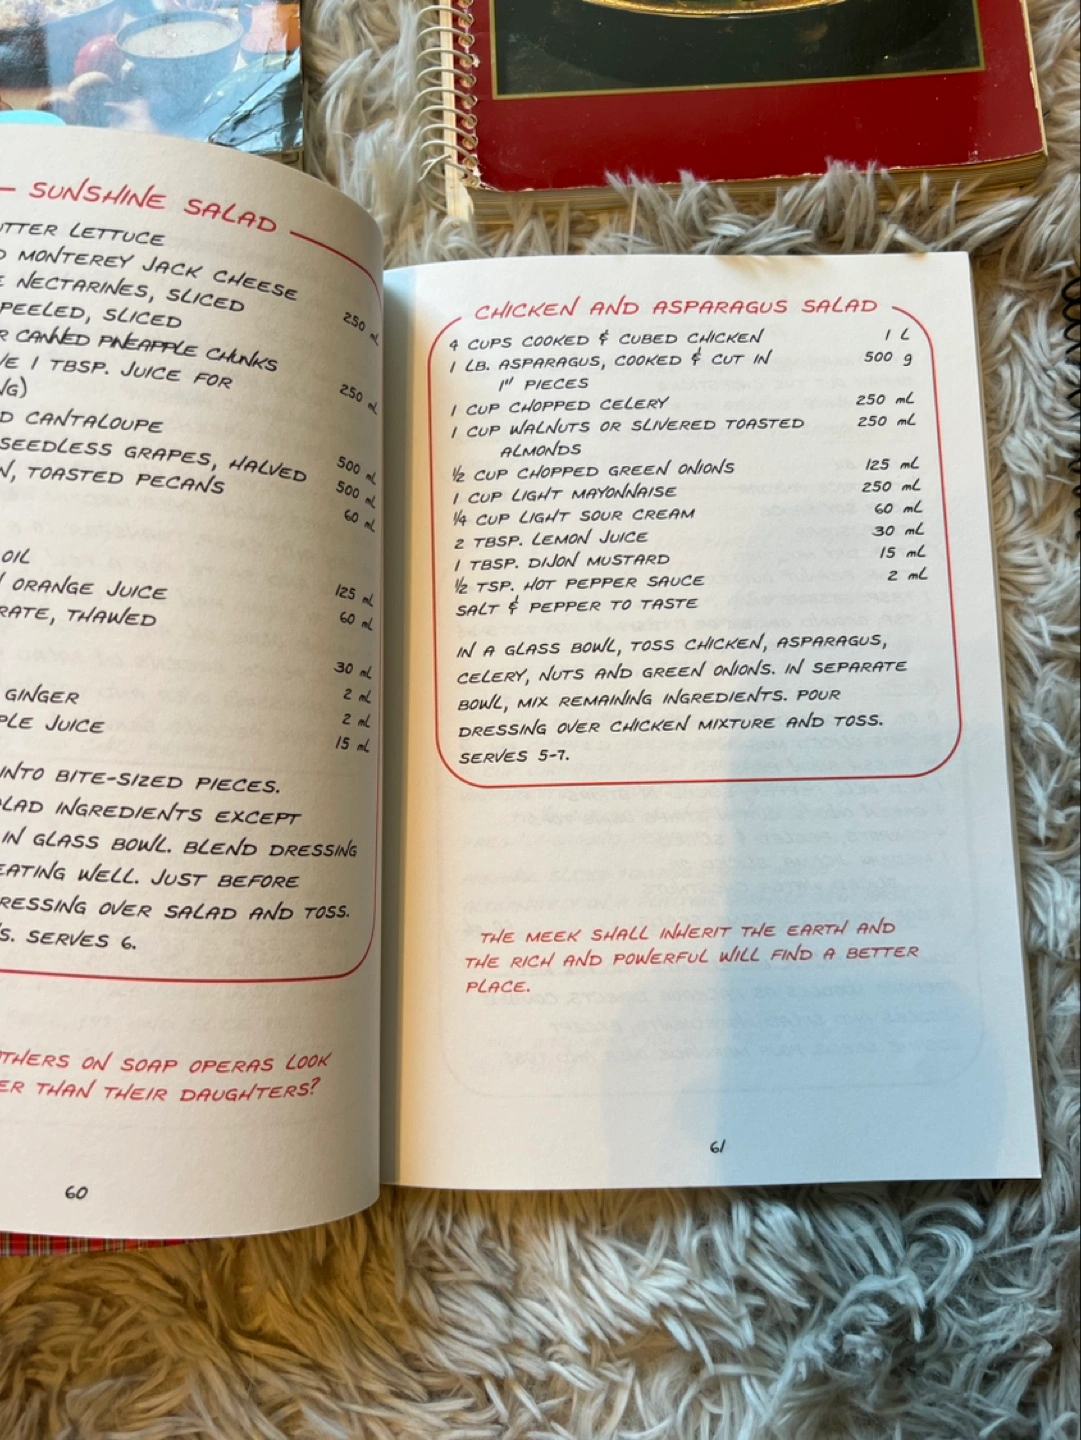 SUNSHINE SALAD
LETTUCE
MONTEREY JACK CHEESE
NECTARINES, SLICED
PEELED, SLICED 250 mL
CANNED PINEAPPLE CHUNKS
1 TBSP. JUICE FOR
250 mL
CANTALOUPE
SEEDLESS GRAPES, HALVED 500 mL
TOASTED PECANS 500 mL
60 mL
OIL
ORANGE JUICE 125 mL
THAWED 60 mL
30 mL
GINGER 2 mL
JUICE 2 mL
15 mL
INTO BITE-SIZED PIECES.
INGREDIENTS EXCEPT
IN GLASS BOWL. BLEND DRESSING
WELL. JUST BEFORE
OVER SALAD AND TOSS.
SERVES 6.
ON SOAP OPERAS LOOK
THAN THEIR DAUGHTERS?
60
CHICKEN AND ASPARAGUS SALAD
4 CUPS COOKED & CUBED CHICKEN 1 L
1 LB. ASPARAGUS, COOKED & CUT IN 500 g
1" PIECES
1 CUP CHOPPED CELERY 250 mL
1 CUP WALNUTS OR SLIVERED TOASTED 250 mL
ALMONDS
½ CUP CHOPPED GREEN ONIONS 125 mL
1 CUP LIGHT MAYONNAISE 250 mL
¼ CUP LIGHT SOUR CREAM 60 mL
2 TBSP. LEMON JUICE 30 mL
1 TBSP. DIJON MUSTARD 15 mL
½ TSP. HOT PEPPER SAUCE 2 mL
SALT & PEPPER TO TASTE
IN A GLASS BOWL, TOSS CHICKEN, ASPARAGUS,
CELERY, NUTS AND GREEN ONIONS. IN SEPARATE
BOWL, MIX REMAINING INGREDIENTS. POUR
DRESSING OVER CHICKEN MIXTURE AND TOSS.
SERVES 5-7.
THE MEEK SHALL INHERIT THE EARTH AND
THE RICH AND POWERFUL WILL FIND A BETTER
PLACE.
61